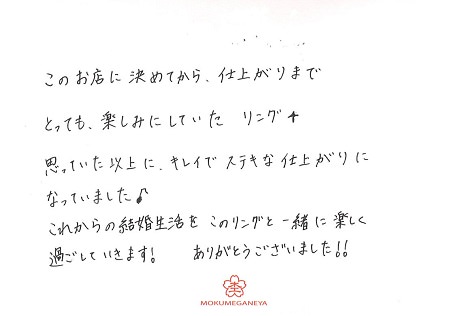 このお店に決めてから、仕上がりまで
とっても、楽しみにしていた リング
思っていた以上に、キレイで ステキな仕上がりに
なっていました♪
これからの結婚生活を このリングと一緒に楽しく
過ごしていきます! ありがとうございました!!
MOKUMEGANEYA